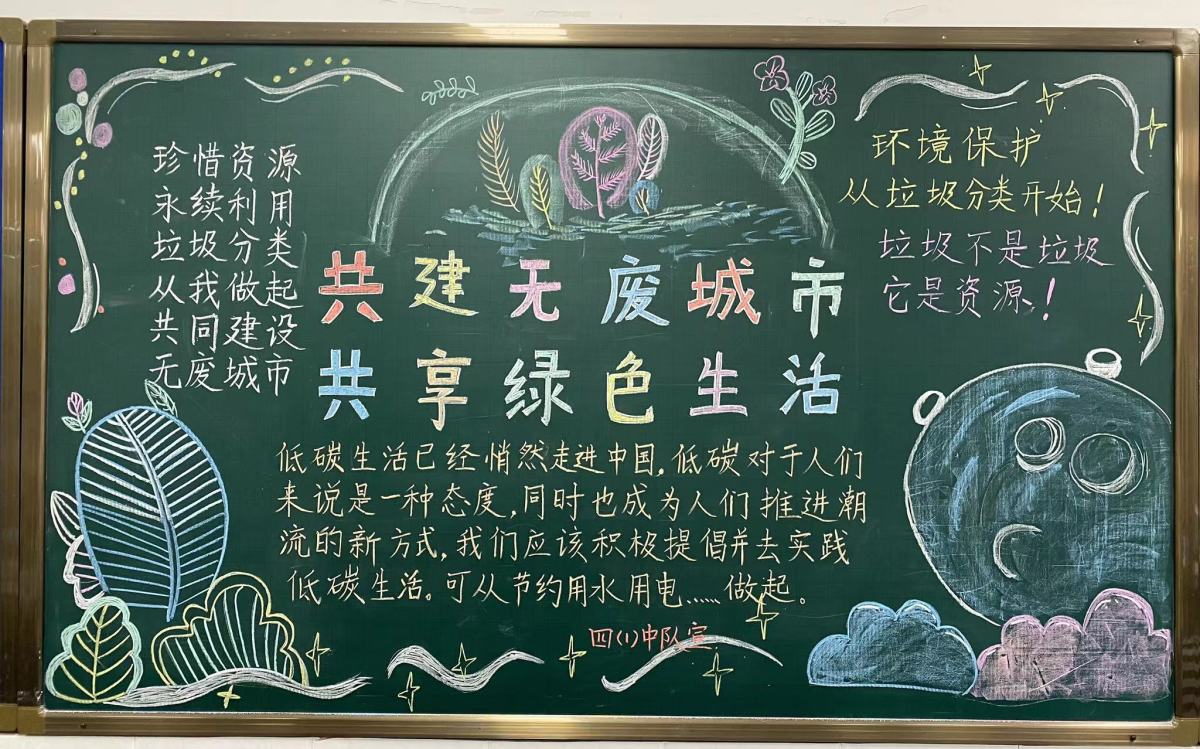 珍惜资源
永续利用
垃圾分类
从我做起
共同建设
无废城市
共建无废城市
共享绿色生活
环境保护
从垃圾分类开始！
垃圾不是垃圾
它是资源、！
低碳生活已经悄然走进中国，低碳对于人们
来说是一种态度，同时也成为人们推进潮
流的新方式，我们应该积极提倡并去实践
低碳生活。可从节约用水用电……做起。
四(1)中队宣